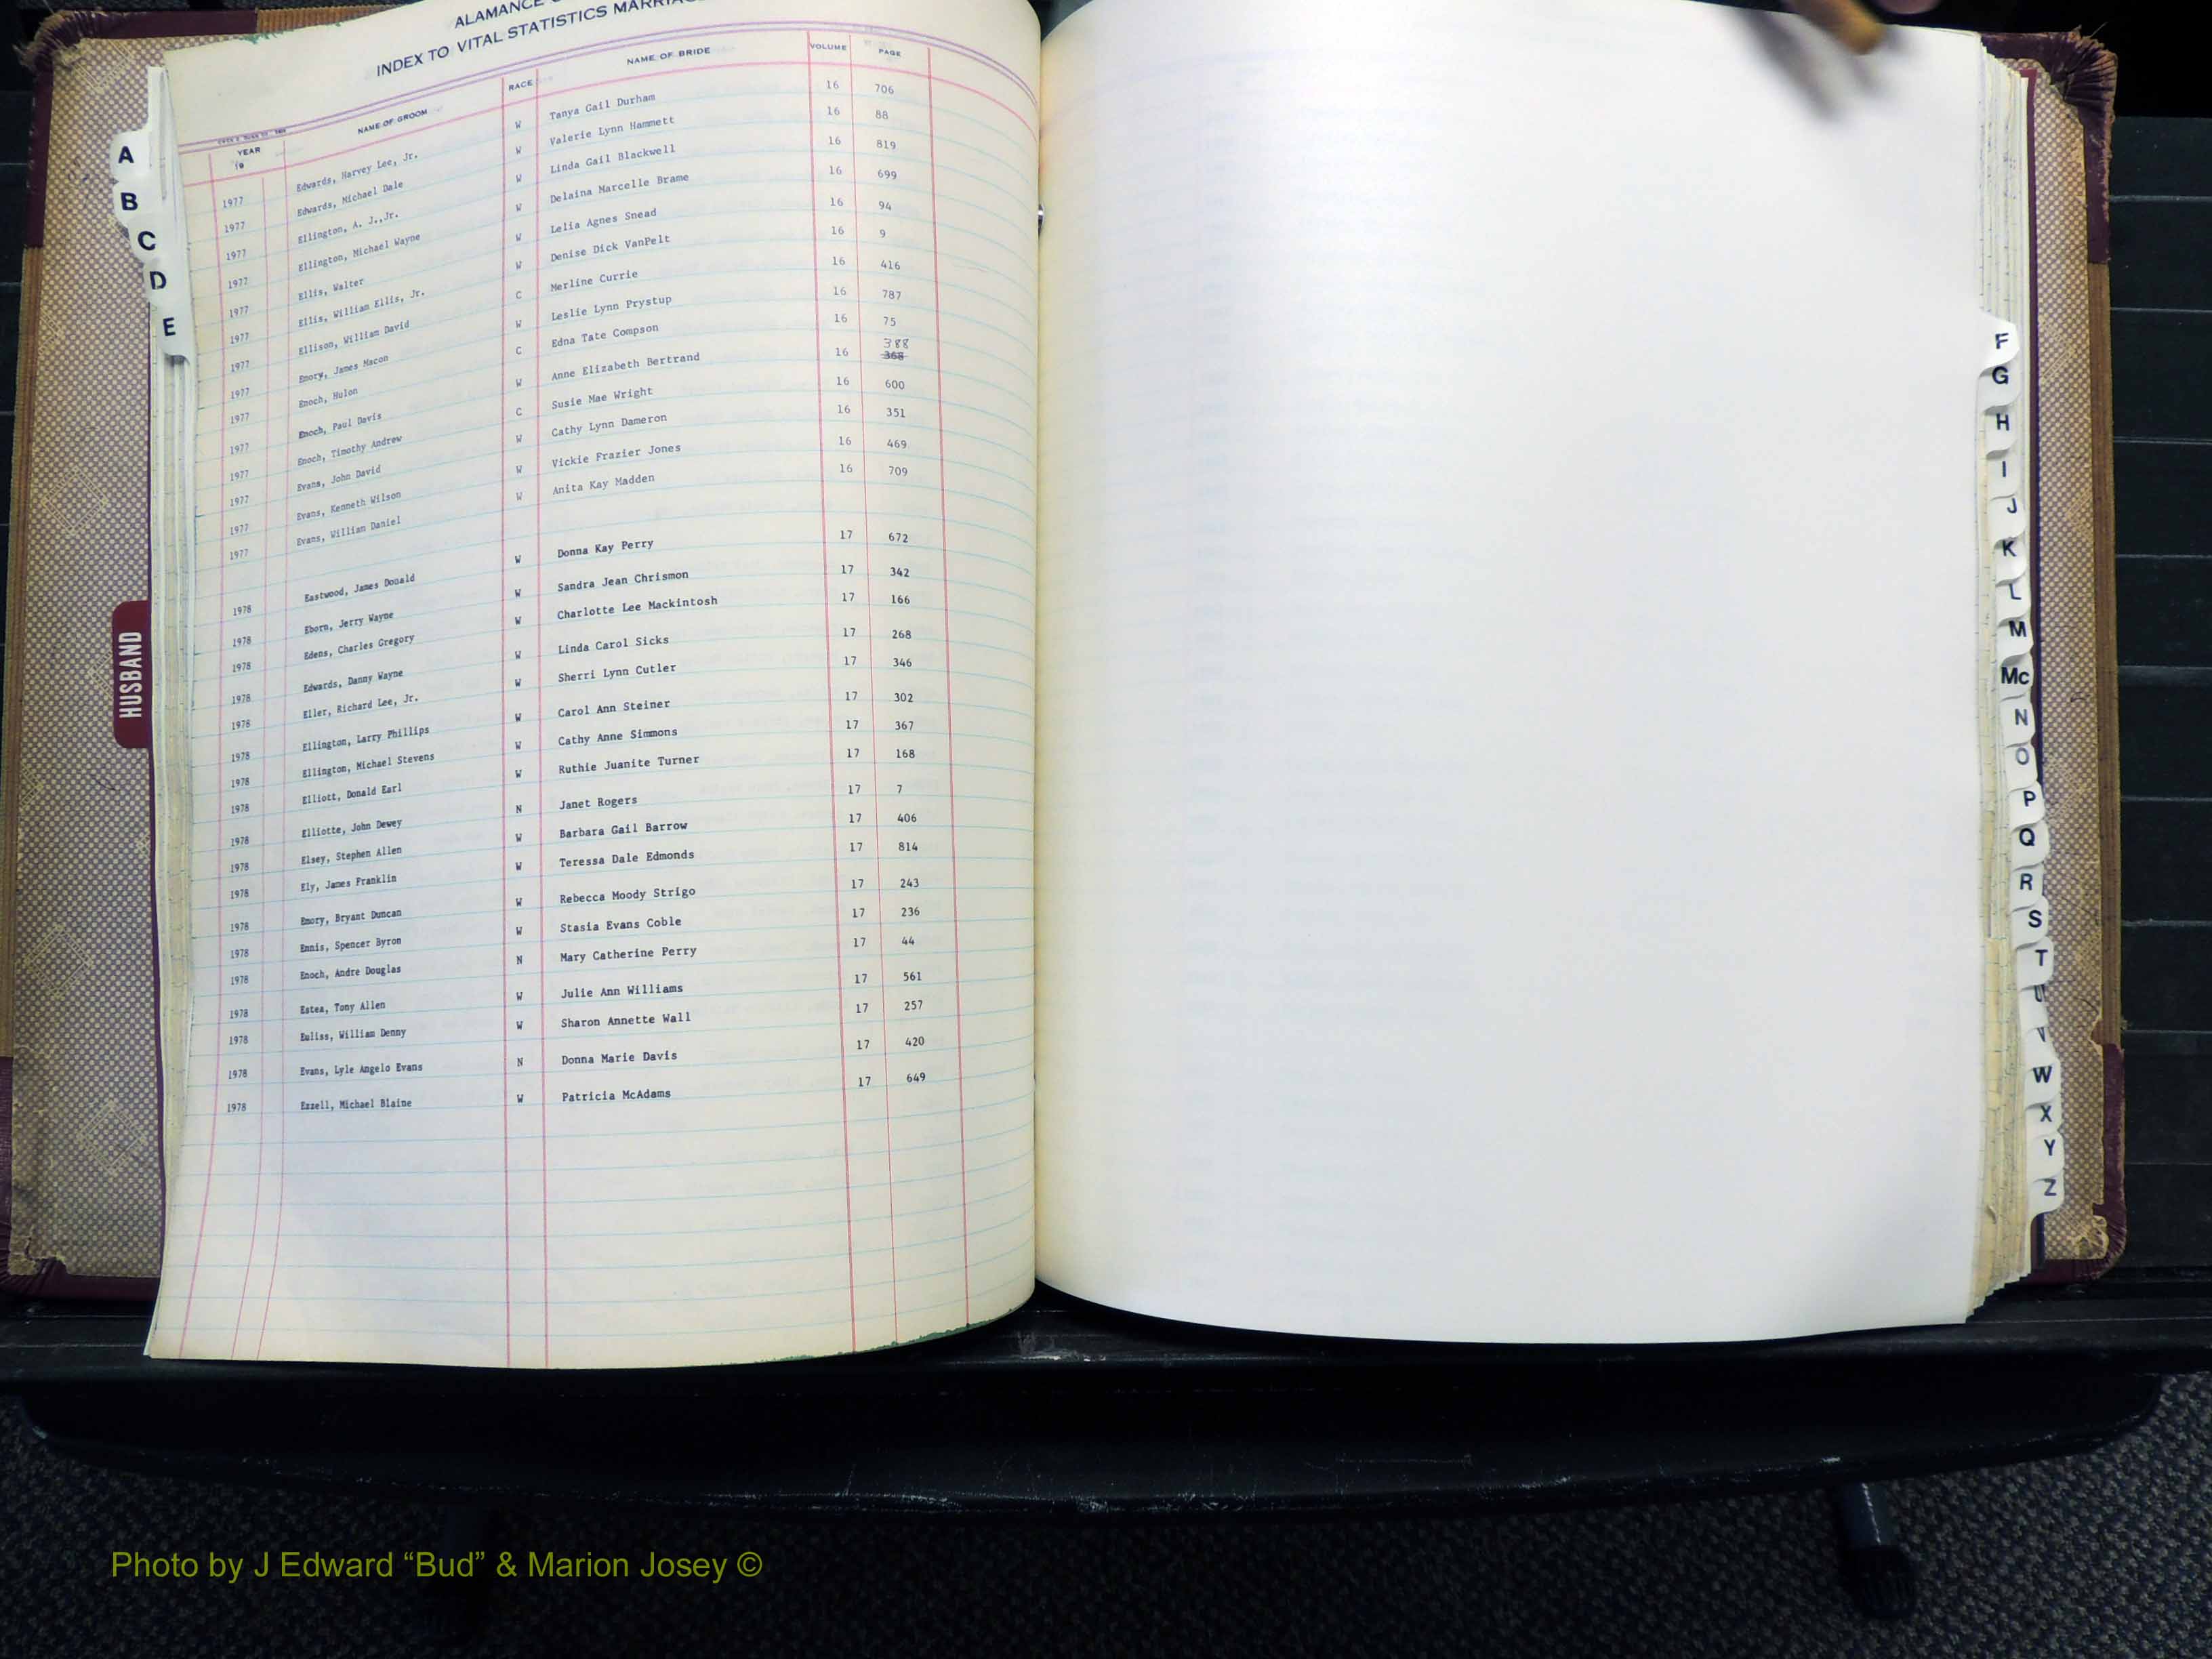 ALAMANCE
INDEX TO VITAL STATISTICS
YEAR 19 NAME OF GROOM RACE NAME OF BRIDE VOLUME PAGE
1977 Edwards, Harvey Lee, Jr. W Tanya Gail Durham 16 706
1977 Edwards, Michael Dale W Valerie Lynn Hammett 16 88
1977 Ellington, A. J.,Jr. W Linda Gail Blackwell 16 819
1977 Ellington, Michael Wayne W Delaina Marcelle Brame 16 699
1977 Ellis, Walter W Lelia Agnes Snead 16 94
1977 Ellis, William Ellis, Jr. W Denise Dick VanPelt 16 9
1977 Ellison, William David C Merline Currie 16 416
1977 Emory, James Macon W Leslie Lynn Prystup 16 787
1977 Enoch, Hulon C Edna Tate Compson 16 75
1977 Enoch, Paul Davis W Anne Elizabeth Bertrand 16 388 368
1977 Enoch, Timothy Andrew C Susie Mae Wright 16 600
1977 Evans, John David W Cathy Lynn Dameron 16 351
1977 Evans, Kenneth Wilson W Vickie Frazier Jones 16 469
1977 Evans, William Daniel W Anita Kay Madden 16 709
1978 Eastwood, James Donald W Donna Kay Perry 17 672
1978 Eborn, Jerry Wayne W Sandra Jean Chrismon 17 342
1978 Edens, Charles Gregory W Charlotte Lee Mackintosh 17 166
1978 Edwards, Danny Wayne W Linda Carol Sicks 17 268
1978 Eller, Richard Lee, Jr. W Sherri Lynn Cutler 17 346
1978 Ellington, Larry Phillips W Carol Ann Steiner 17 302
1978 Ellington, Michael Stevens W Cathy Anne Simmons 17 367
1978 Elliott, Donald Earl W Ruthie Juanite Turner 17 168
1978 Elliotte, John Dewey N Janet Rogers 17 7
1978 Elsey, Stephen Allen W Barbara Gail Barrow 17 406
1978 Ely, James Franklin W Teressa Dale Edmonds 17 814
1978 Emory, Bryant Duncan W Rebecca Moody Strigo 17 243
1978 Ennis, Spencer Byron W Stasia Evans Coble 17 236
1978 Enoch, Andre Douglas N Mary Catherine Perry 17 44
1978 Estea, Tony Allen W Julie Ann Williams 17 561
1978 Euliss, William Denny W Sharon Annette Wall 17 257
1978 Evans, Lyle Angelo Evans N Donna Marie Davis 17 420
1978 Ezzell, Michael Blaine W Patricia McAdams 17 649
A
B
C
D
E
HUSBAND
F
G
H
I
J
K
L
M
Mc
N
O
P
Q
R
S
T
U
V
W
X
Y
Z
Photo by J Edward “Bud” & Marion Josey ©